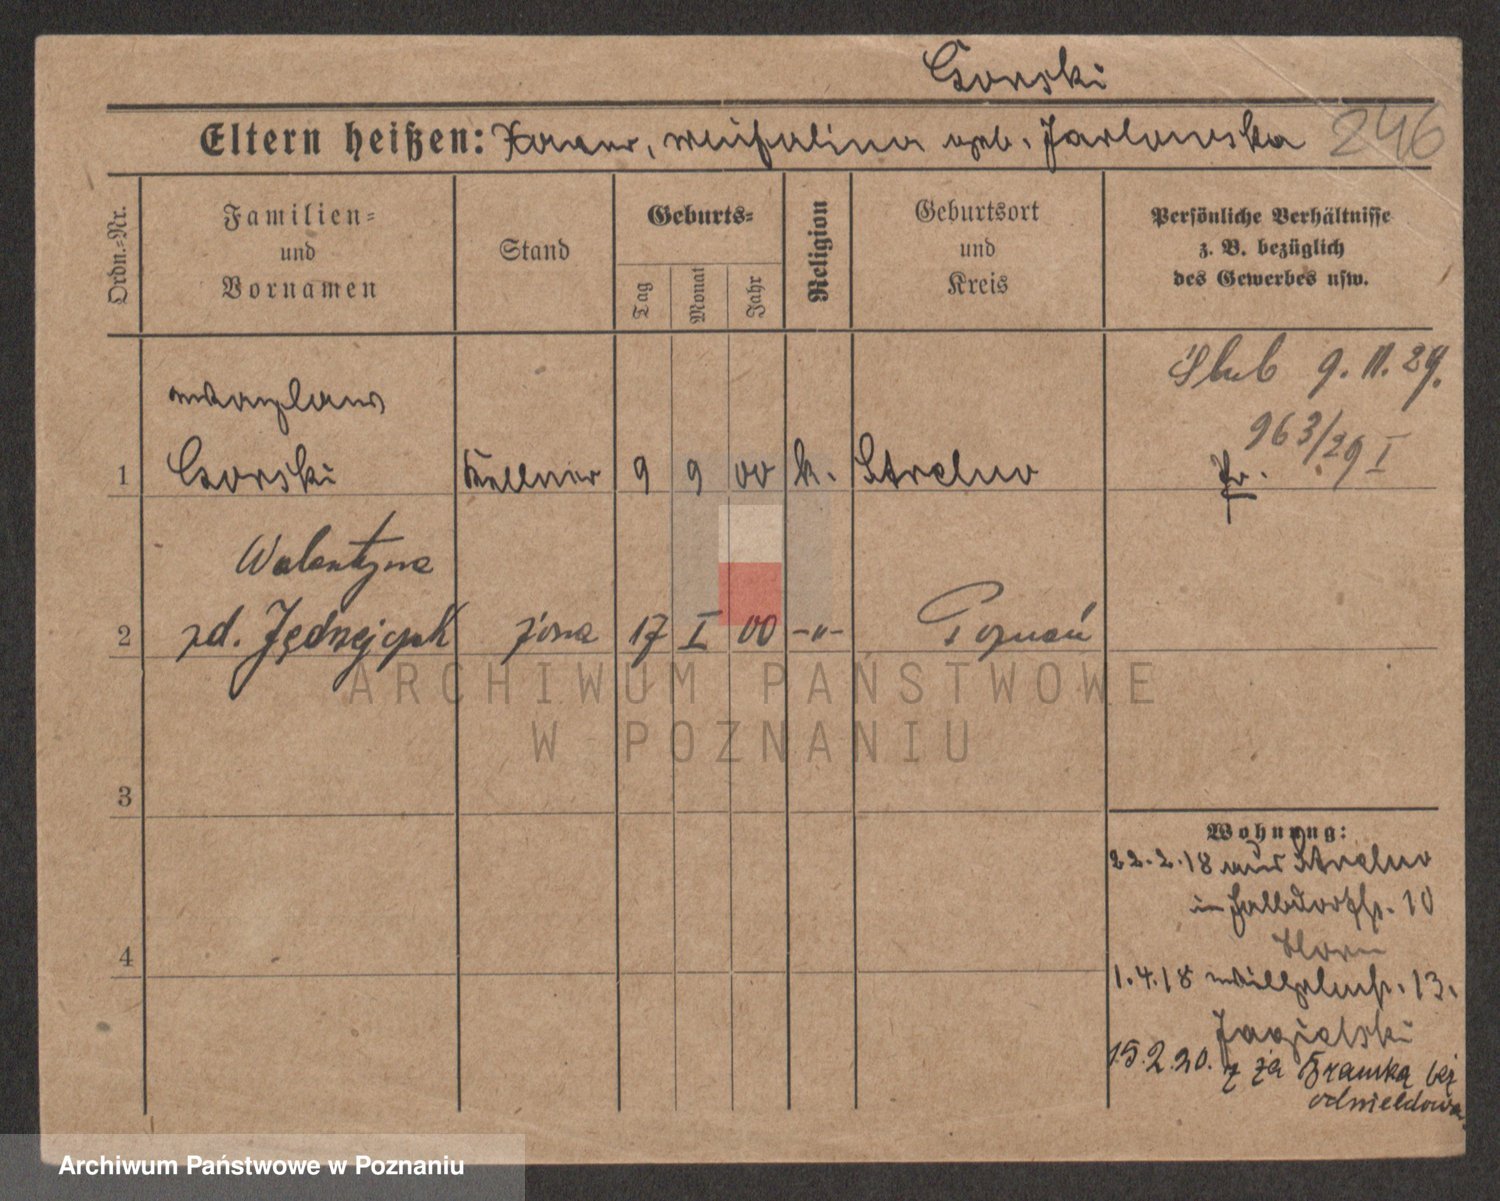 Gorski
Eltern heißen: Xaver, Michalina geb. Jarlowska 246
Ordn.=Nr.
Familien=
und
Vornamen
Stand
Geburts=
Tag
Monat
Jahr
Religion
Geburtsort
und
Kreis
Persönliche Verhältnisse
z. B. bezüglich
des Gewerbes usw.
Ślub 9. 11. 29.
963/29 I
Wazlaus
1 Gorski Kellner 9 9 00 k. Strelno
Walentyna
2 zd. Jędrzejczak żona 17 I 00 -"- Poznań
3
4
Wohnung:
22.2.18 aus Strelno
in Halbdorfstr. 10
Horn
1.4.18 Wilhelmstr. 13.
Jagielski
15.2.20. z za Bramką bez
odmeldowa.
ARCHIWUM PAŃSTWOWE
W POZNANIU
Archiwum Państwowe w Poznaniu